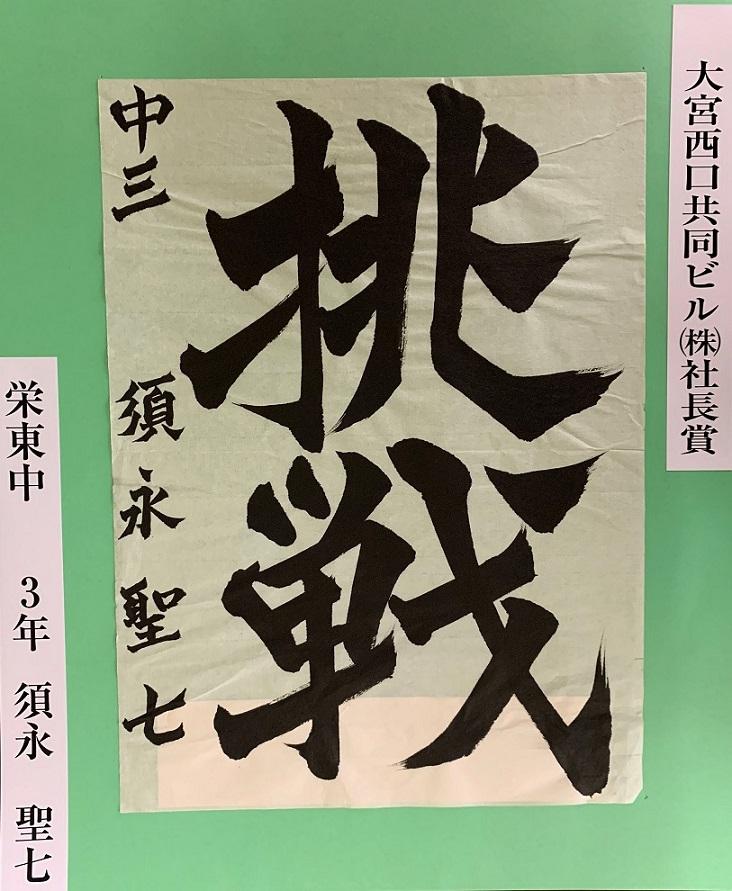 大宮西口共同ビル㈱社長賞
挑戦
中三 須永聖七
栄東中 3年 須永 聖七